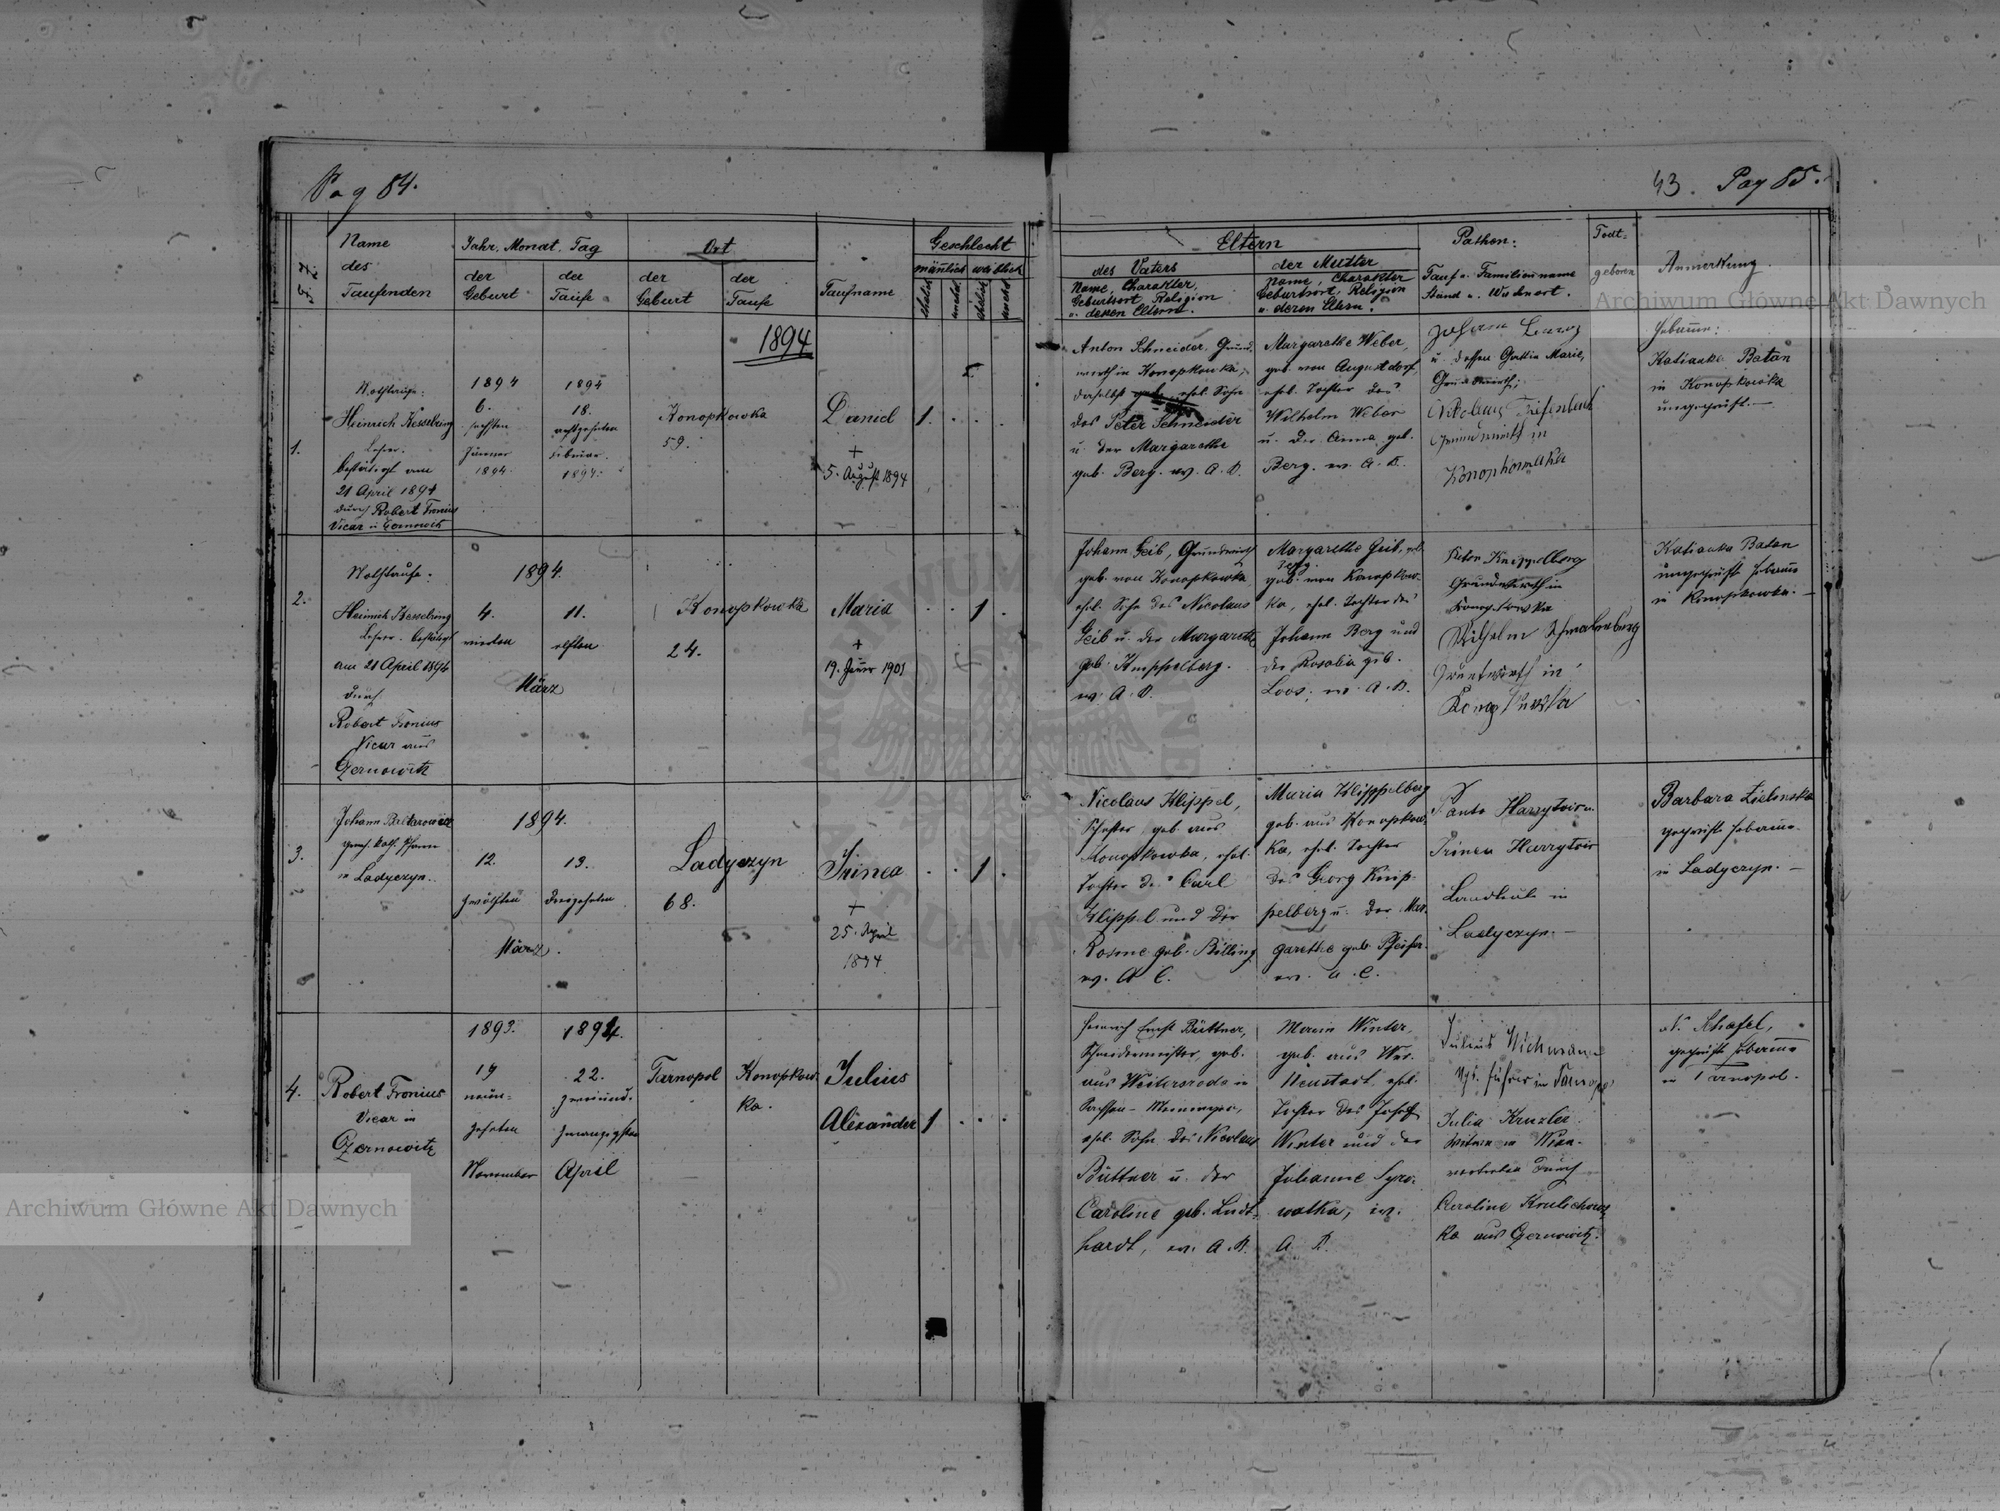 Pag 84.
43. Pag 85.
Name des Taufenden
Jahr. Monat. Tag
der Geburt
der Taufe
Ort
der Geburt
der Taufe
Taufname
Geschlecht
männlich weiblich
Eltern
des Vaters
Name, Charakter, Geburtsort, Religion u. deren Eltern.
der Mutter
Name, Charakter Geburtsort, Religion u. deren Eltern.
Pathen:
Tauf u. Familienname
Stand u. Wohnort.
Todt-
geboren
Anmerkung.
Archiwum Główne Akt Dawnych
1894
1.
Nothtaufe:
Heinrich Kesselring
Lehrer.
bestätigt am
21 April 1894
durch Robert Fronius
Vicar in Czernowitz
1894
6.
sechsten
Jänner
1894.
1894
18.
achtzehnten
Februar.
1894.
Konopkowka
59.
Daniel
+
5. August 1894
1.
Anton Schneider, Grund-
wirth in Konopkowka,
daselbst ehel. Sohn
des Peter Schneider
u. der Margarethe
geb. Berg. ev. A. B.
Margarethe Weber,
geb. von Augustdorf,
ehel. Tochter des
Wilhelm Weber
u. der Anna geb.
Berg. ev. A. B.
Johann
u. dessen Gattin Marie,
Grundwirth;
Grundwirth in
Konopkowka
Hebamme:
Katianka Batan
in Konopkowka
ungeprüft.—
2.
Nothtaufe.
Heinrich Kesselring
Lehrer. bestätigt
am 21 April 1894
durch
Robert Fronius
Vicar aus
Czernowitz
1894.
4.
vierten
11.
elften
März
Konopkowka
24.
Maria
+
19. Jänner 1901
1
Johann Geib, Grundwirth
geb. von Konopkowka
ehel. Sohn des Nicolaus
Geib u. der Margarethe
geb. Knippelberg.
ev. A. B.
Margarethe Geib, geb.
Berg.
geb. von Konopkow-
ka, ehel. Tochter des
Johann Berg und
der Rosalia geb.
Loos, ev. A. B.
Peter Knippelberg
Grundwirth in
Konopkowka
Wilhelm Schmalenberg
Grundwirth in
Konopkowka
Katianka Batan
ungeprüft Hebamme
in Konopkowka.—
3.
Johann
in Ladyczyn.
1894.
12.
zwölften
13.
dreizehnten
März.
Ladyczyn
68.
Irinea
+
25. April
1894
1
Nicolaus Klippel,
geb. aus
Konopkowka, ehel.
Tochter des Carl
Klippel und der
Rosine geb. Billing
ev. A C.
Maria Knippelberg
geb. aus Konopkow-
ka, ehel. Tochter
des Georg Knip-
pelberg u. der Mar-
garethe geb. Pfeifer.
ev. A. C.
Landleute in
Ladyczyn.—
Barbara Zielinska
geprüft Hebamme
in Ladyczyn.—
4.
Robert Fronius
Vicar in
Czernowitz
1893.
19
neun-
zehnten
November
1894.
22.
zweiund-
zwanzigsten
April
Tarnopol
Konopkow-
ka.
Julius
Alexander
1
Heinrich Ernst Büttner,
Schneidermeister, geb.
aus Weitersroda in
Sachsen-Meiningen,
ehel. Sohn des Nicolaus
Büttner u. der
Caroline geb. Lud-
hardt, ev. A. B.
Maria Winter,
geb. aus Wr.
Neustadt, ehel.
Tochter des Josef
Winter und der
Johanne Syro-
watka, ev.
A. B.
Julius
in Tarnopol
Julia
Witwe in Wien.
vertreten durch
Caroline
ka aus Czernowitz.
N. Schafel,
geprüft Hebamme
in Tarnopol.
Archiwum Główne Akt Dawnych